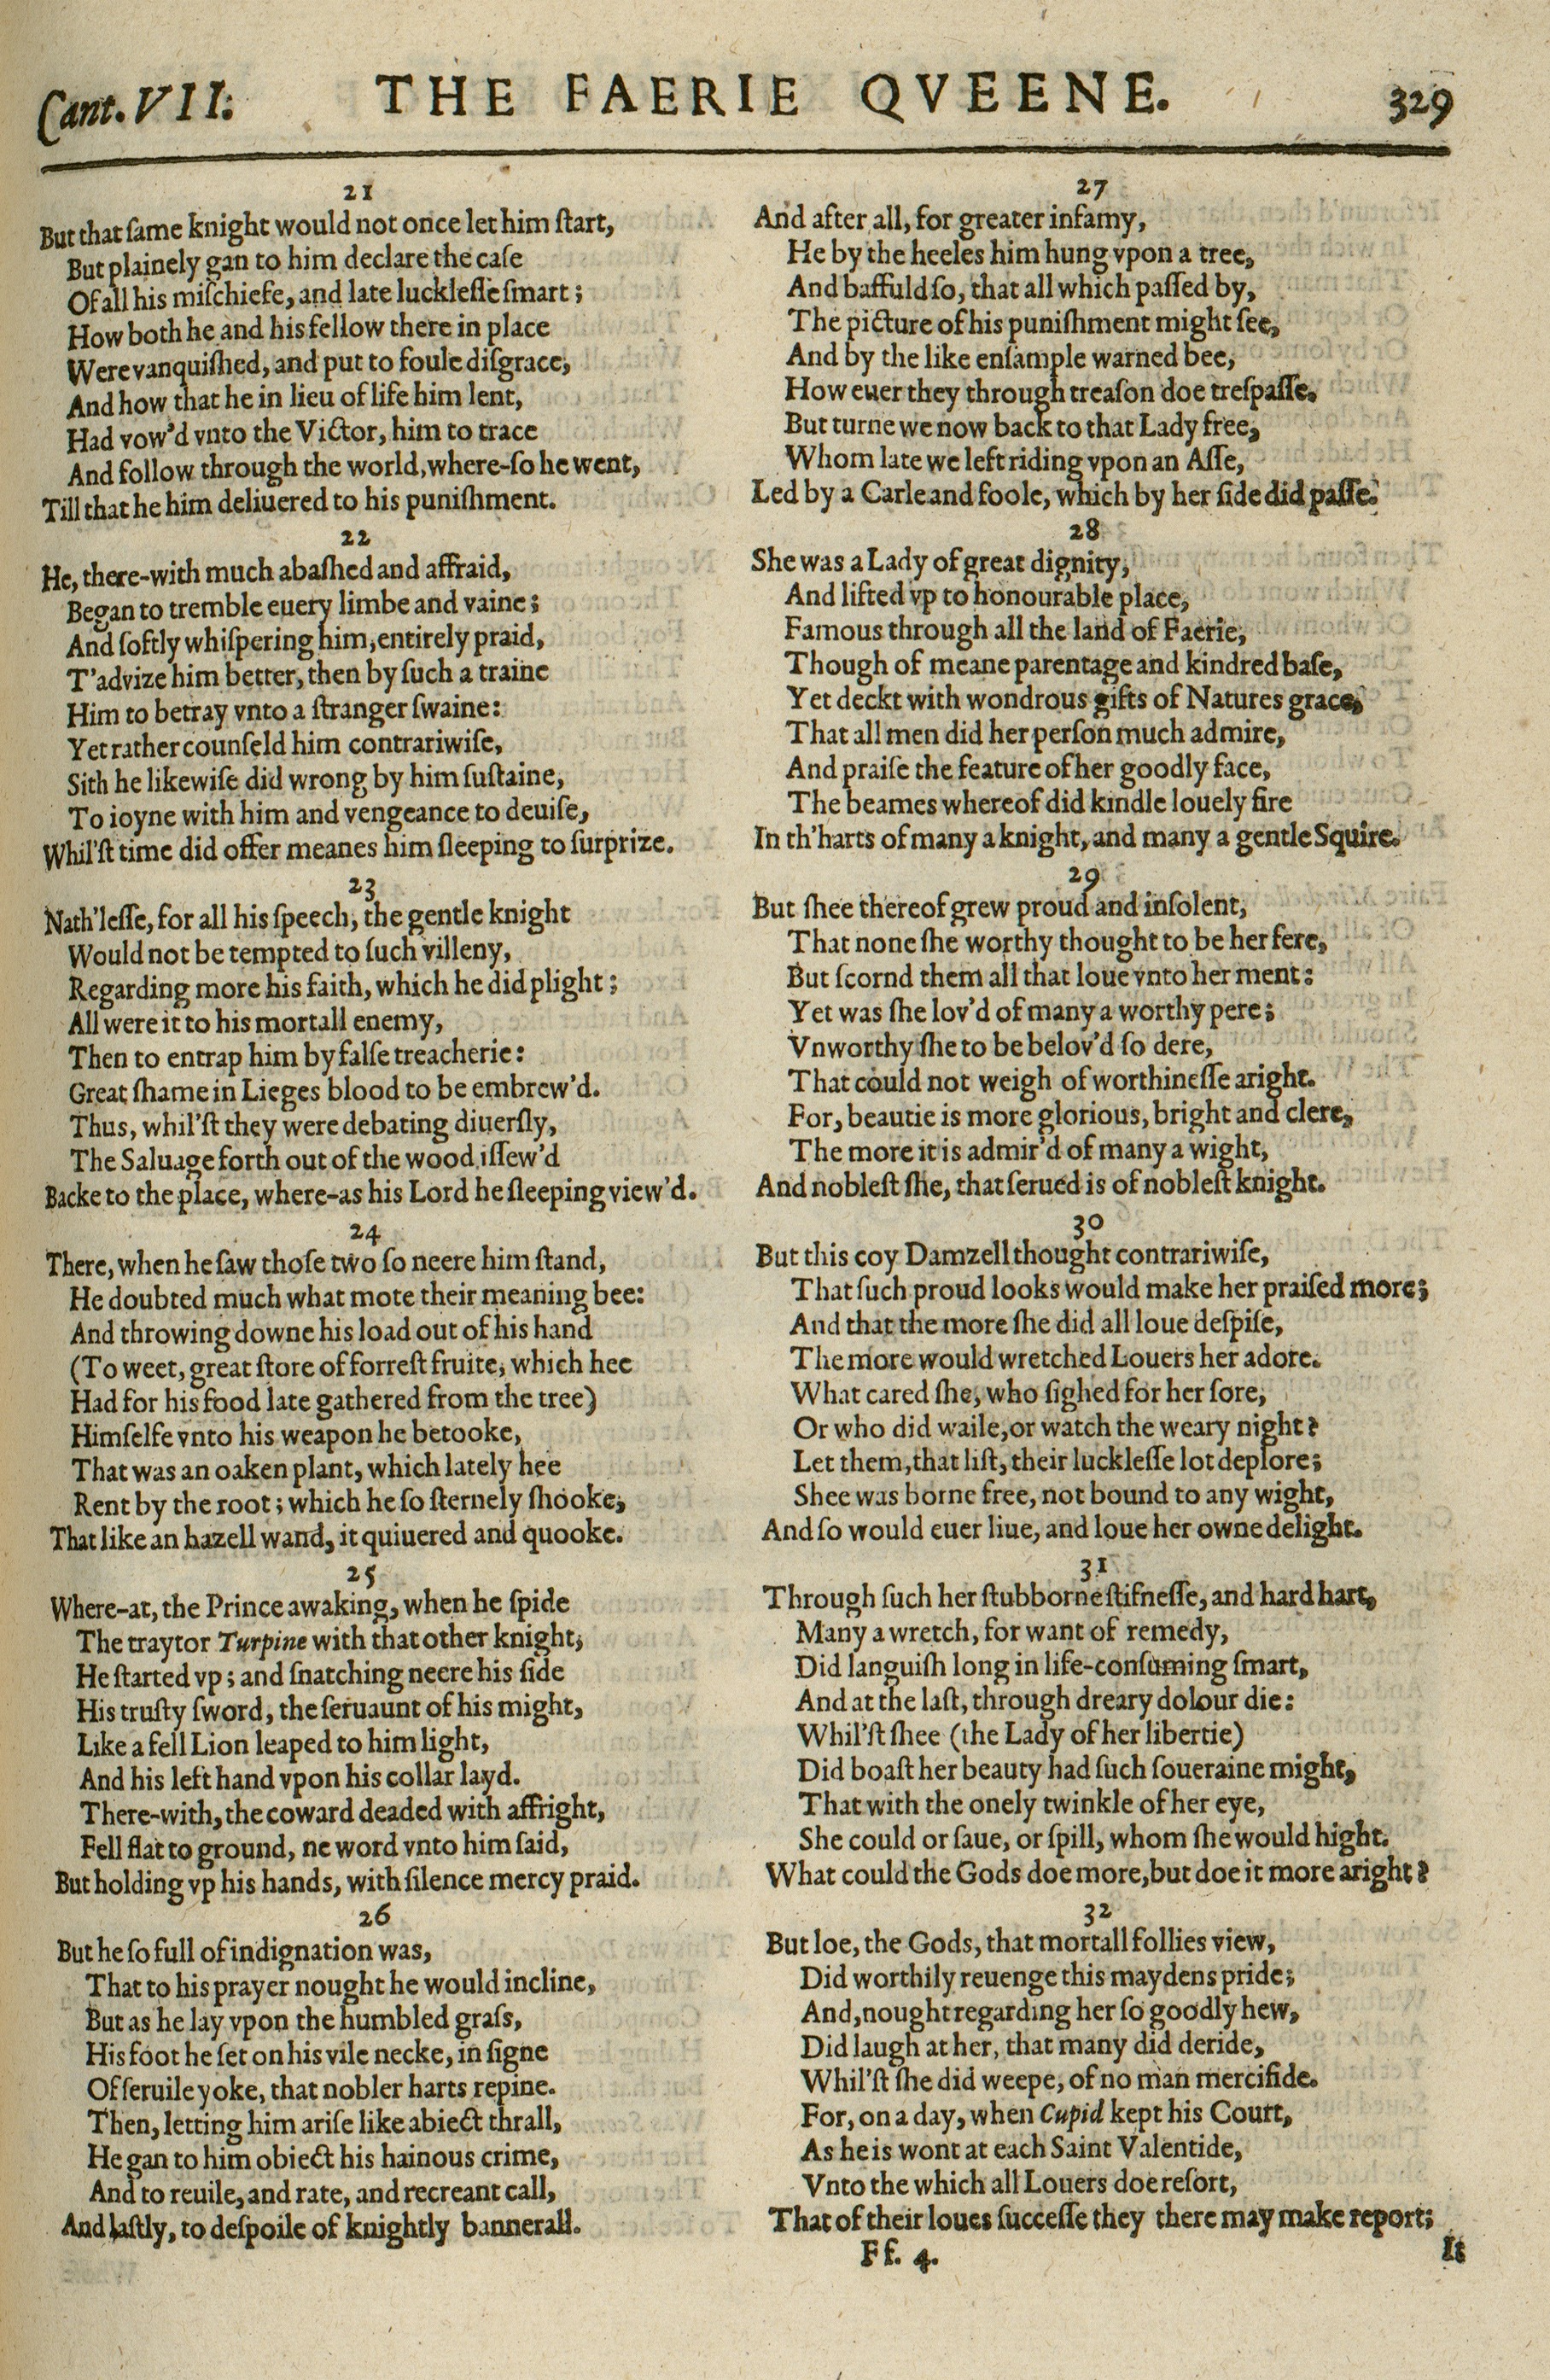 Cant. VII: THE FAERIE QVEENE. 329
21
But that ſame knight would not once let him ſtart,
But plainely gan to him declare the caſe
Of all his miſchiefe, and late luckleſſe ſmart;
How both he and his fellow there in place
Were vanquiſhed, and put to foule diſgrace,
And how that he in lieu of life him lent,
Had vow'd vnto the Victor, him to trace
And follow through the world, where-ſo he went,
Till that he him deliuered to his puniſhment.
22
He, there-with much abaſhed and affraid,
Began to tremble euery limbe and vaine;
And ſoftly whiſpering him, entirely praid,
T'advize him better, then by ſuch a traine
Him to betray vnto a ſtranger ſwaine:
Yet rather counſeld him contrariwiſe,
Sith he likewiſe did wrong by him ſuſtaine,
To ioyne with him and vengeance to deuiſe,
Whil'ſt time did offer meanes him ſleeping to ſurprize.
23
Nath'leſſe, for all his ſpeech, the gentle knight
Would not be tempted to ſuch villeny,
Regarding more his faith, which he did plight;
All were it to his mortall enemy,
Then to entrap him by falſe treacherie:
Great ſhame in Lieges blood to be embrew'd.
Thus, whil'ſt they were debating diuerſly,
The Saluage forth out of the wood iſſew'd
Backe to the place, where-as his Lord he ſleeping view'd.
24
There, when he ſaw thoſe two ſo neere him ſtand,
He doubted much what mote their meaning bee:
And throwing downe his load out of his hand
(To weet, great ſtore of forreſt fruite, which hee
Had for his food late gathered from the tree)
Himſelfe vnto his weapon he betooke,
That was an oaken plant, which lately hee
Rent by the root; which he ſo ſternely ſhooke,
That like an hazell wand, it quiuered and quooke.
25
Where-at, the Prince awaking, when he ſpide
The traytor Turpine with that other knight,
He ſtarted vp; and ſnatching neere his ſide
His truſty ſword, the ſeruaunt of his might,
Like a fell Lion leaped to him light,
And his left hand vpon his collar layd.
There-with, the coward deaded with affright,
Fell flat to ground, ne word vnto him ſaid,
But holding vp his hands, with ſilence mercy praid.
26
But he ſo full of indignation was,
That to his prayer nought he would incline,
But as he lay vpon the humbled graſs,
His foot he ſet on his vile necke, in ſigne
Of ſeruile yoke, that nobler harts repine.
Then, letting him ariſe like abiect thrall,
He gan to him obiect his hainous crime,
And to reuile, and rate, and recreant call,
And laſtly, to deſpoile of knightly bannerall.
27
And after all, for greater infamy,
He by the heeles him hung vpon a tree,
And baffuld ſo, that all which paſſed by,
The picture of his puniſhment might ſee,
And by the like enſample warned bee,
How euer they through treaſon doe treſpaſſe.
But turne we now back to that Lady free,
Whom late we left riding vpon an Aſſe,
Led by a Carle and foole, which by her ſide did paſſe.
28
She was a Lady of great dignity,
And lifted vp to honourable place,
Famous through all the land of Faerie,
Though of meane parentage and kindred baſe,
Yet deckt with wondrous gifts of Natures grace,
That all men did her perſon much admire,
And praiſe the feature of her goodly face,
The beames whereof did kindle louely fire
In th'harts of many a knight, and many a gentle Squire.
29
But ſhee thereof grew proud and inſolent,
That none ſhe worthy thought to be her fere,
But ſcornd them all that loue vnto her ment:
Yet was ſhe lov'd of many a worthy pere;
Vnworthy ſhe to be belov'd ſo dere,
That could not weigh of worthineſſe aright.
For, beautie is more glorious, bright and clere,
The more it is admir'd of many a wight,
And nobleſt ſhe, that ſerued is of nobleſt knight.
30
But this coy Damzell thought contrariwiſe,
That ſuch proud looks would make her praiſed more;
And that the more ſhe did all loue deſpiſe,
The more would wretched Louers her adore.
What cared ſhe, who ſighed for her ſore,
Or who did waile, or watch the weary night?
Let them, that liſt, their luckleſſe lot deplore;
Shee was borne free, not bound to any wight,
And ſo would euer liue, and loue her owne delight.
31
Through ſuch her ſtubborne ſtifneſſe, and hard hart,
Many a wretch, for want of remedy,
Did languiſh long in life-conſuming ſmart,
And at the laſt, through dreary dolour die:
Whil'ſt ſhee (the Lady of her libertie)
Did boaſt her beauty had ſuch ſoueraine might,
That with the onely twinkle of her eye,
She could or ſaue, or ſpill, whom ſhe would hight.
What could the Gods doe more, but doe it more aright?
32
But loe, the Gods, that mortall follies view,
Did worthily reuenge this maydens pride;
And, nought regarding her ſo goodly hew,
Did laugh at her, that many did deride,
Whil'ſt ſhe did weepe, of no man mercifide.
For, on a day, when Cupid kept his Court,
As he is wont at each Saint Valentide,
Vnto the which all Louers doe reſort,
That of their loues ſucceſſe they there may make report;
Ff. 4. It